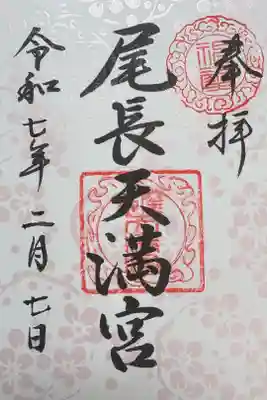 奉拝
尾長天満宮
令和七年二月七日